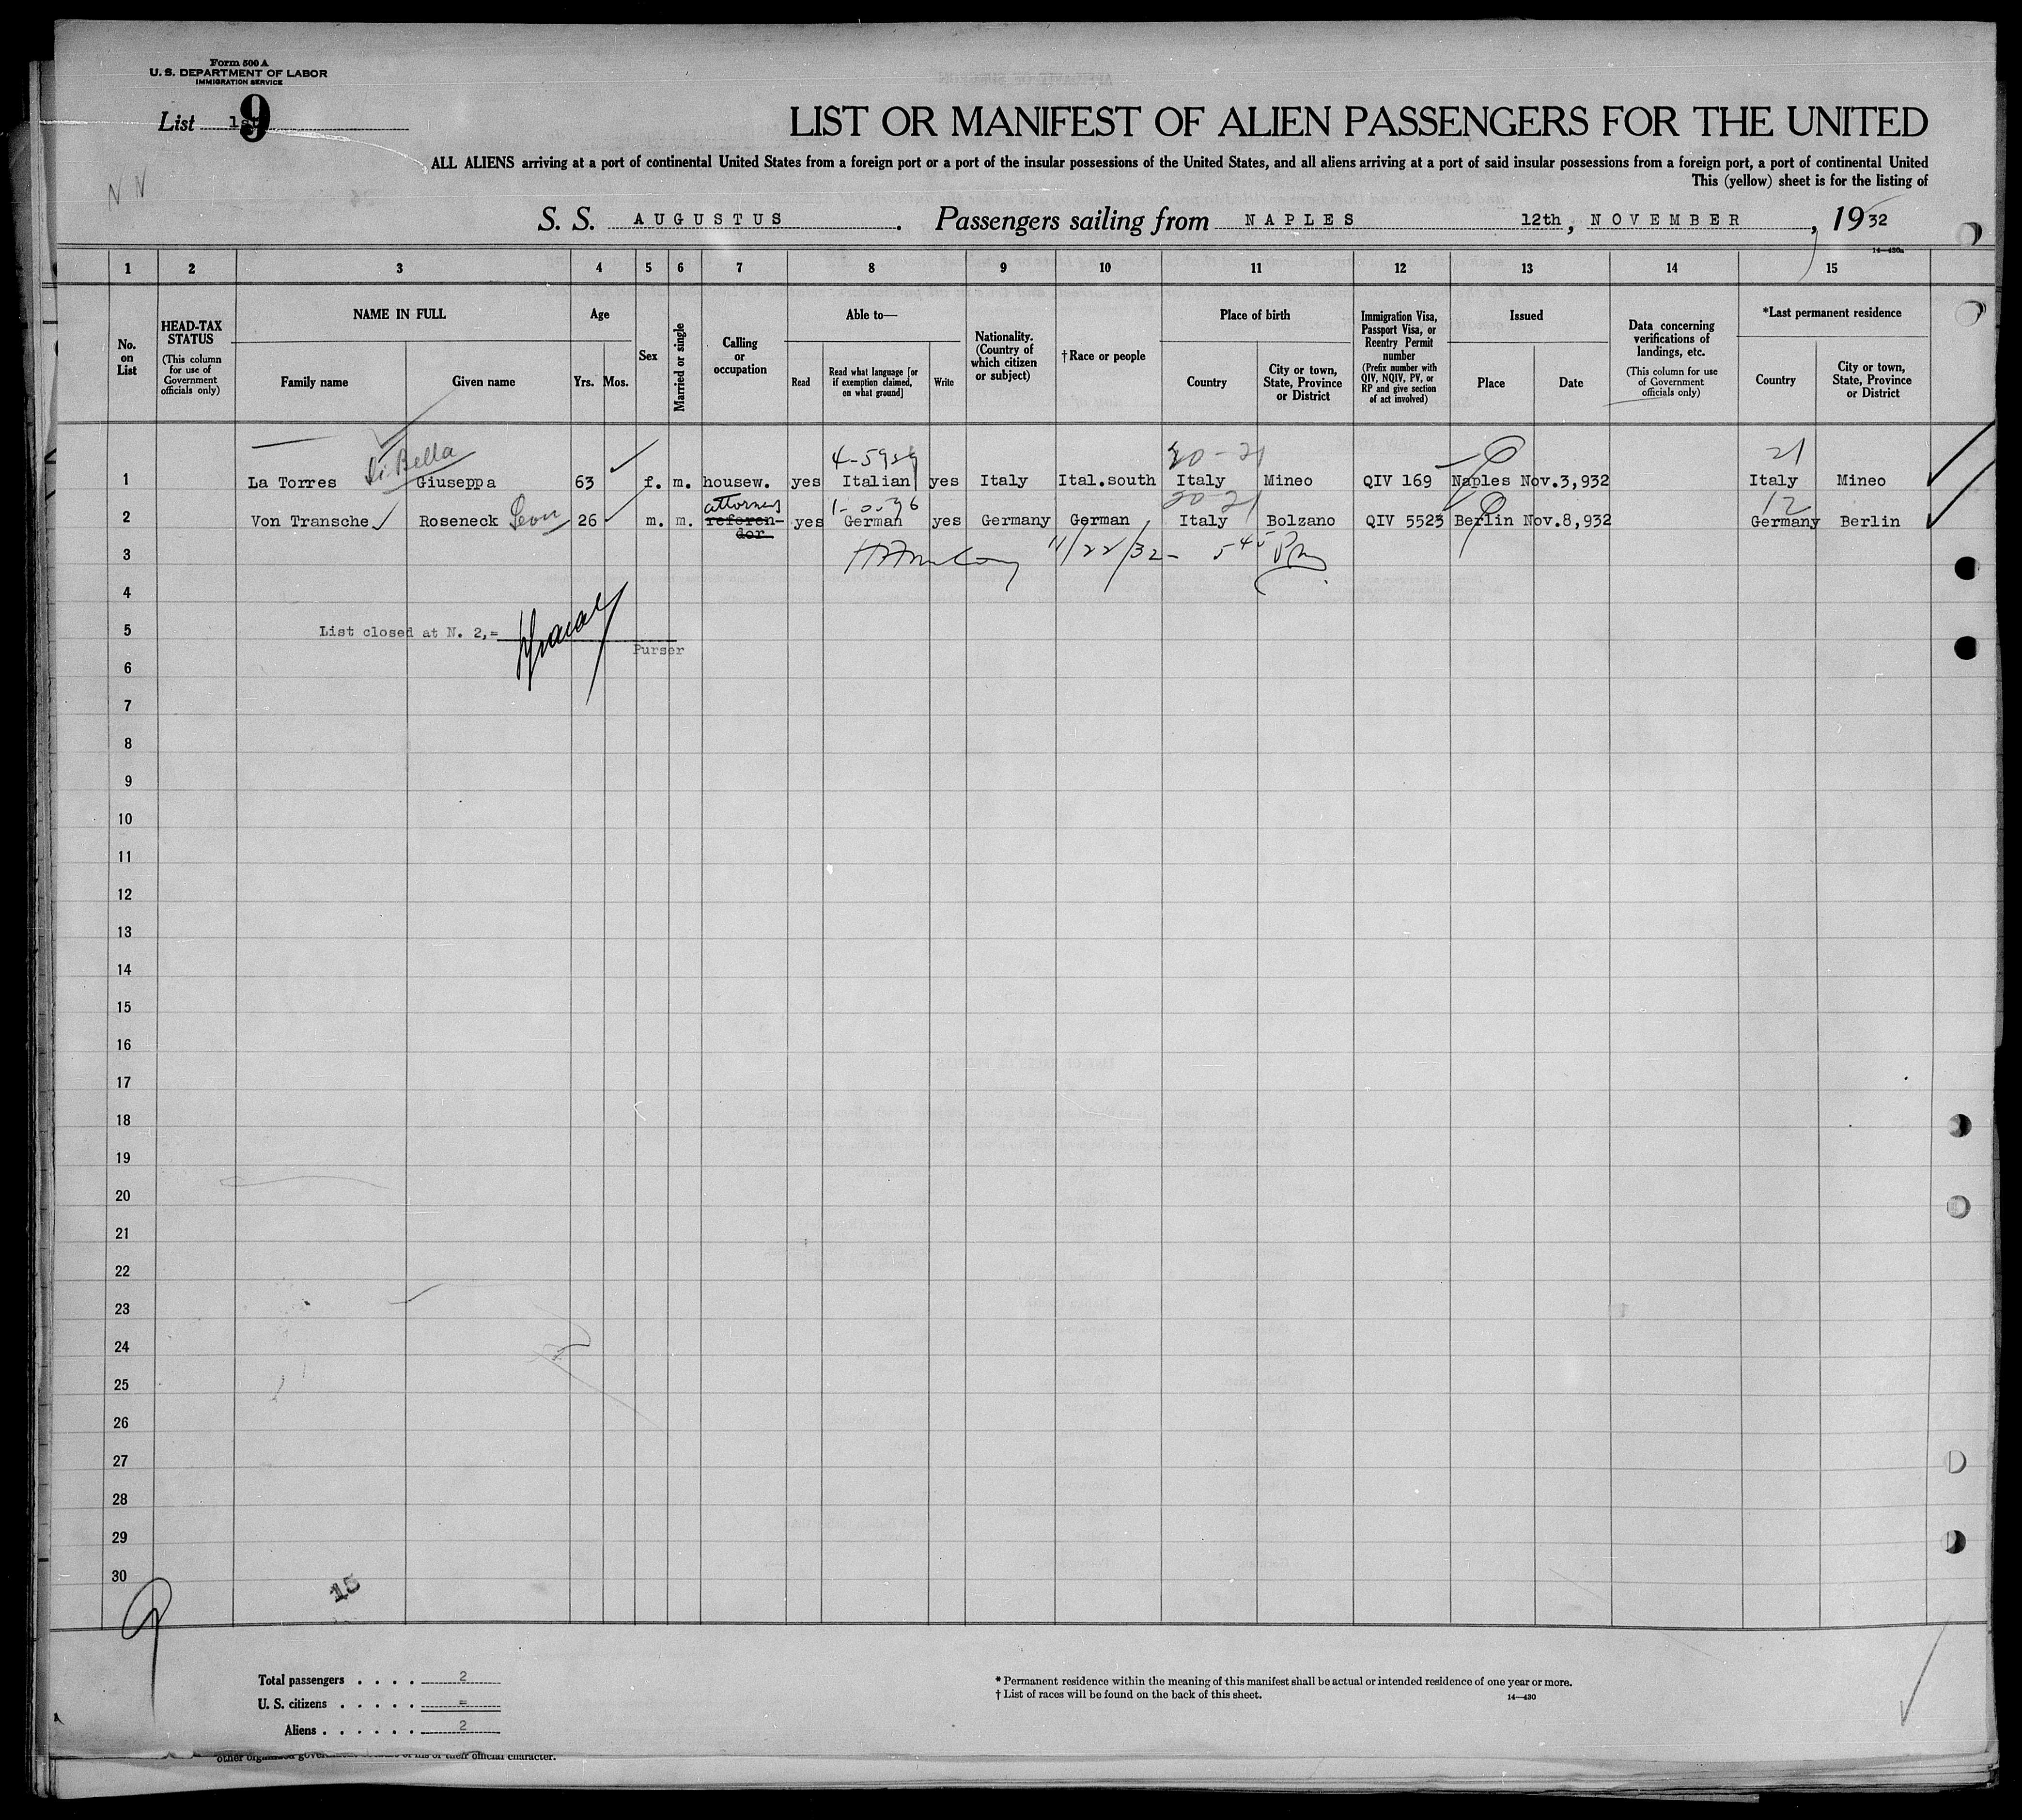 Form 500 A
U. S. DEPARTMENT OF LABOR
IMMIGRATION SERVICE
List 9
LIST OR MANIFEST OF ALIEN PASSENGERS FOR THE UNITED
ALL ALIENS arriving at a port of continental United States from a foreign port or a port of the insular possessions of the United States, and all aliens arriving at a port of said insular possessions from a foreign port, a port of continental United
This (yellow) sheet is for the listing of
S. S. AUGUSTUS. Passengers sailing from NAPLES 12th, NOVEMBER, 1932
14—430a
1 2 3 4 5 6 7 8 9 10 11 12 13 14 15
No. on List
HEAD-TAX STATUS (This column for use of Government officials only)
NAME IN FULL
Family name Given name
Age
Yrs. Mos.
Sex
Married or single
Calling or occupation
Able to—
Read
Read what language [or if exemption claimed, on what ground]
Write
Nationality. (Country of which citizen or subject)
†Race or people
Place of birth
Country
City or town, State, Province or District
Immigration Visa, Passport Visa, or Reentry Permit number (Prefix number with QIV, NQIV, PV, or RP and give section of act involved)
Issued
Place Date
Data concerning verifications of landings, etc. (This column for use of Government officials only)
*Last permanent residence
Country
City or town, State, Province or District
Di Bella 20-21 21
1 La Torres Giuseppa 63 f. m. housew. yes Italian yes Italy Ital.south Italy Mineo QIV 169 Naples Nov.3,932 Italy Mineo
attorney 20-21 12
2 Von Transche Roseneck Leon 26 m. m. referen- yes German yes Germany German Italy Bolzano QIV 5523 Berlin Nov.8,932 Germany Berlin
dor
3 11/22/32- 5 45 PM
4
5 List closed at N. 2,=
Purser
6
7
8
9
10
11
12
13
14
15
16
17
18
19
20
21
22
23
24
25
26
27
28
29
30
15
Total passengers . . . . 2
U. S. citizens . . . . . =
Aliens . . . . . . 2
* Permanent residence within the meaning of this manifest shall be actual or intended residence of one year or more.
† List of races will be found on the back of this sheet. 14—430
their official character.